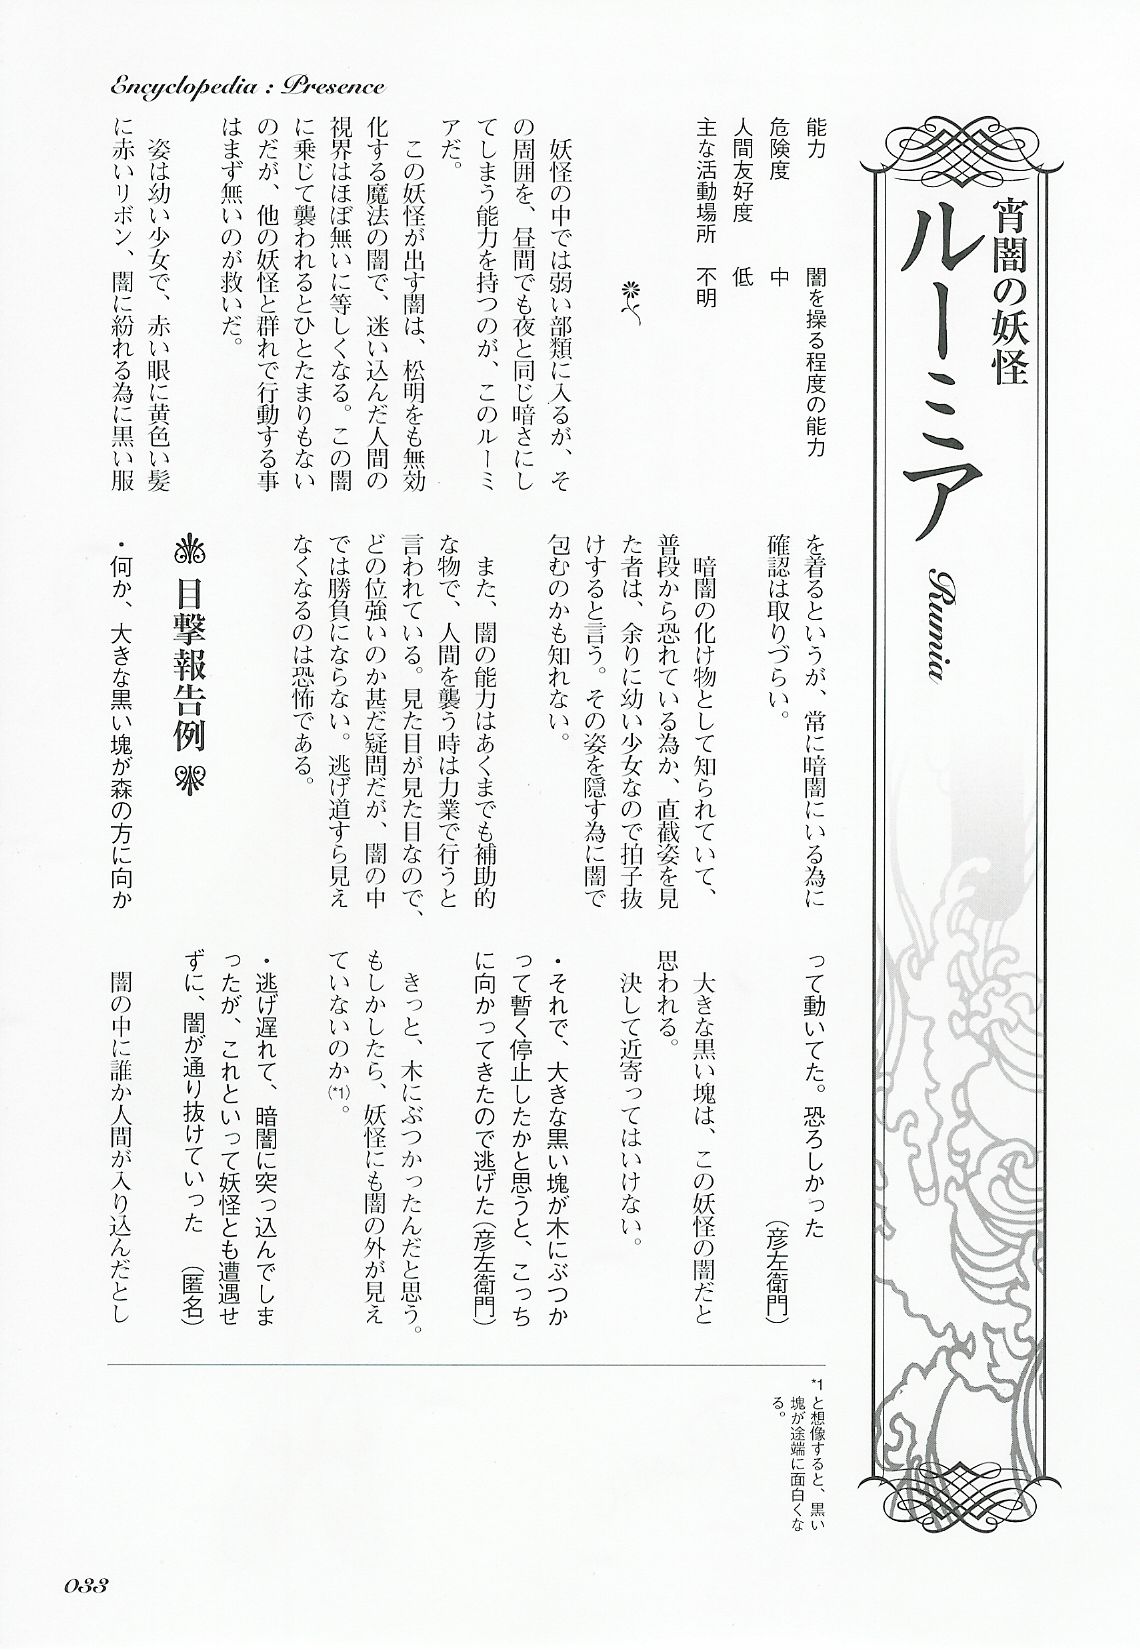 Encyclopedia : Presence
宵闇の妖怪
ルーミア Rumia
能力 闇を操る程度の能力
危険度 中
人間友好度 低
主な活動場所 不明
妖怪の中では弱い部類に入るが、そ
の周囲を、昼間でも夜と同じ暗さにし
てしまう能力を持つのが、このルーミ
アだ。
この妖怪が出す闇は、松明をも無効
化する魔法の闇で、迷い込んだ人間の
視界はほぼ無いに等しくなる。この闇
に乗じて襲われるとひとたまりもない
のだが、他の妖怪と群れで行動する事
はまず無いのが救いだ。
姿は幼い少女で、赤い眼に黄色い髪
に赤いリボン、闇に紛れる為に黒い服
を着るというが、常に暗闇にいる為に
確認は取りづらい。
暗闇の化け物として知られていて、
普段から恐れている為か、直截姿を見
た者は、余りに幼い少女なので拍子抜
けすると言う。その姿を隠す為に闇で
包むのかも知れない。
また、闇の能力はあくまでも補助的
な物で、人間を襲う時は力業で行うと
言われている。見た目が見た目なので、
どの位強いのか甚だ疑問だが、闇の中
では勝負にならない。逃げ道すら見え
なくなるのは恐怖である。
目撃報告例
・何か、大きな黒い塊が森の方に向か
って動いてた。恐ろしかった
（彦左衛門）
大きな黒い塊は、この妖怪の闇だと
思われる。
決して近寄ってはいけない。
・それで、大きな黒い塊が木にぶつか
って暫く停止したかと思うと、こっち
に向かってきたので逃げた（彦左衛門）
きっと、木にぶつかったんだと思う。
もしかしたら、妖怪にも闇の外が見え
ていないのか(*1)。
・逃げ遅れて、暗闇に突っ込んでしま
ったが、これといって妖怪とも遭遇せ
ずに、闇が通り抜けていった （匿名）
闇の中に誰か人間が入り込んだとし
*1 と想像すると、黒い
塊が途端に面白くな
る。
033